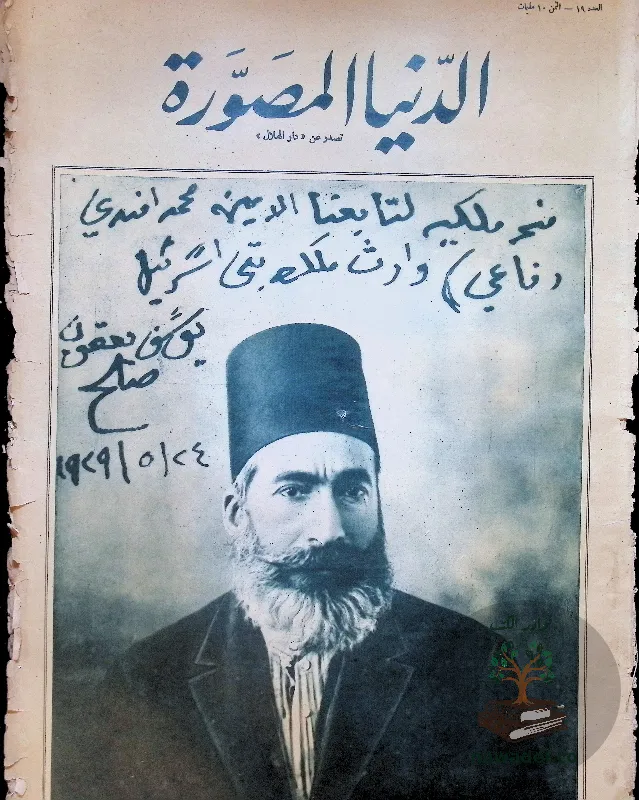 العدد ١٩ — الثمن ١٠ مليمات
الدّنيا المصَوَّرة
تصدر عن «دار الهلال»
منحه ملكيه لتابعنا الامين محمد افندي
رفاعي) وارث ملك بنى اسرئيل
يوسف يعقوب
صالح
٢٤/٥/١٩٢٩